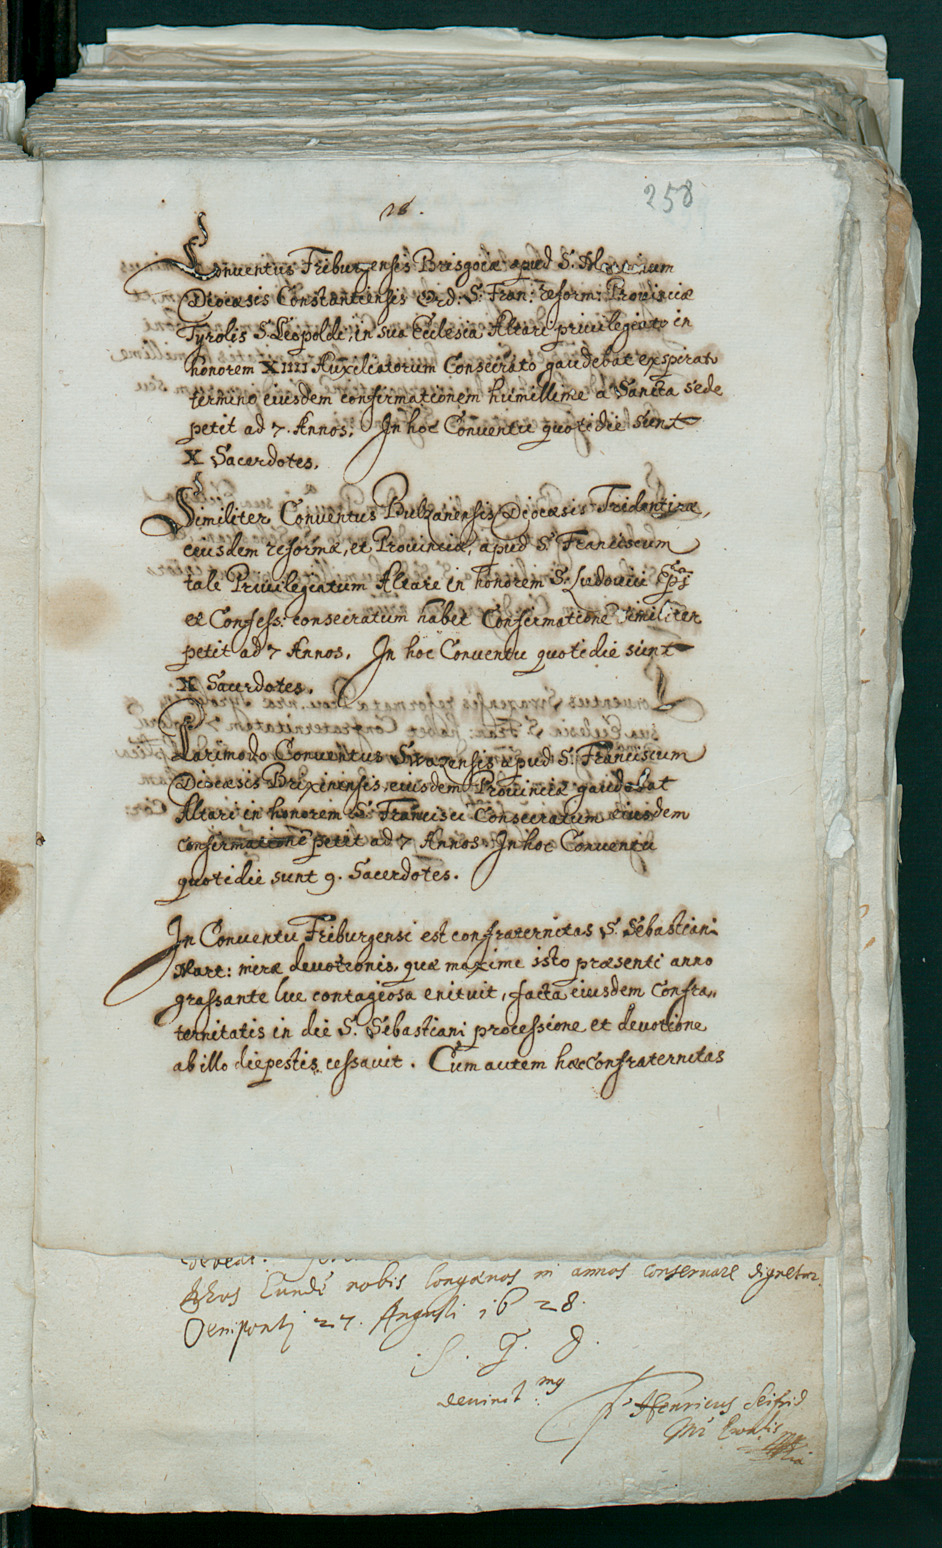 258
28.
Conuentus Friburgensis Brisgoiæ apud S. Martinum
Diocæsis Constantiensis Ord: S. Fran: reform: Prouinciæ
Tyrolis S. Leopoldi, in sua Ecclesia Altari priuilegiato in
honorem XIIII Auxiliatorum Consecrato gaudebat exspirato
termino eiusdem confirmationem humillime a Sancta sede
petit ad 7. Annos. In hoc Conuentu quotidie sunt
X Sacerdotes.
Similiter Conuentus Bulzanensis Diocæsis Tridentinæ,
eiusdem reformæ, et Prouinciæ, apud S. Franciscum
tale Priuilegiatum Altare in honorem S. Ludouici Epī
et Confess: consecratum habet Confirmationē Similiter
petit ad 7 Annos. In hoc Conuentu quotidie sunt
X Sacerdotes.
Parimodo Conuentus Swazensis apud S. Franciscum
Diocæsis Brixinensis, eiusdem Prouinciæ gaudebat
Altari in honorem S. Francisci Consecratum eiusdem
confirmationē petit ad 7 Annos. In hoc Conuentu
quotidie sunt 9. Sacerdotes.
In Conuentu Friburgensi est confraternitas S. Sebastiani
Mart: meræ deuotionis, quæ maxime isto præsenti anno
grassante lue contagiosa enituit, facta eiusdem Confra„
ternitatis in die S. Sebastiani processione et deuotione
ab illo die pestis cessauit. Cum autem hæc Confraternitas
nobis longævos in annos conseruare dignetur.
Oeniponti 27. Augusti 1628.
deuinct.mg
Fr. Henricus Seifrid